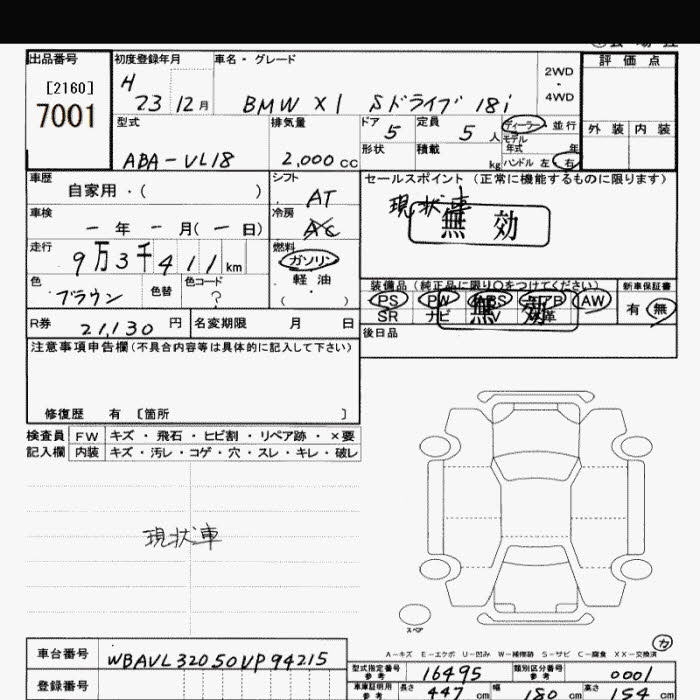 出品番号 初度登録年月 車名・グレード 評価点
[2160] H 2WD
7001 23 12月 BMW X1 Sドライブ 18i ・
4WD
型式 排気量 ドア 定員 ディーラー 並行 外装 内装
5 5人 モデル
年式 年
ABA-VL18 2,000cc 形状 積載 kg ハンドル 左 右
車歴 シフト セールスポイント (正常に機能するものに限ります)
自家用・( ) AT 現状車
車検 冷房 無効
ー年 ー月(ー日) AC
走行 燃料
9万3千411km ガソリン
色 色替 色コード 軽油 装備品 (純正品に限り○をつけてください) 新車保証書
ブラウン ? ( ) PS PW ABS AW 有 無
SR ナビ 無効
R券 21,130円 名変期限 月 日 後日品
注意事項申告欄(不具合内容等は具体的に記入して下さい)
修復歴 有 [箇所 ]
検査員 FW キズ・飛石・ヒビ割・リペア跡・×要
記入欄 内装 キズ・汚レ・コゲ・穴・スレ・キレ・破レ
現状車
スペア
カ
A-キズ E-エクボ U-凹み W-補修跡 S-サビ C-腐食 XX-交換済
車台番号 WBAVL32050VP94215
型式指定番号 参考 16495 類別区分番号 参考 0001
登録番号 車庫証明用 参考 長さ 447cm 幅 180cm 高さ 154cm